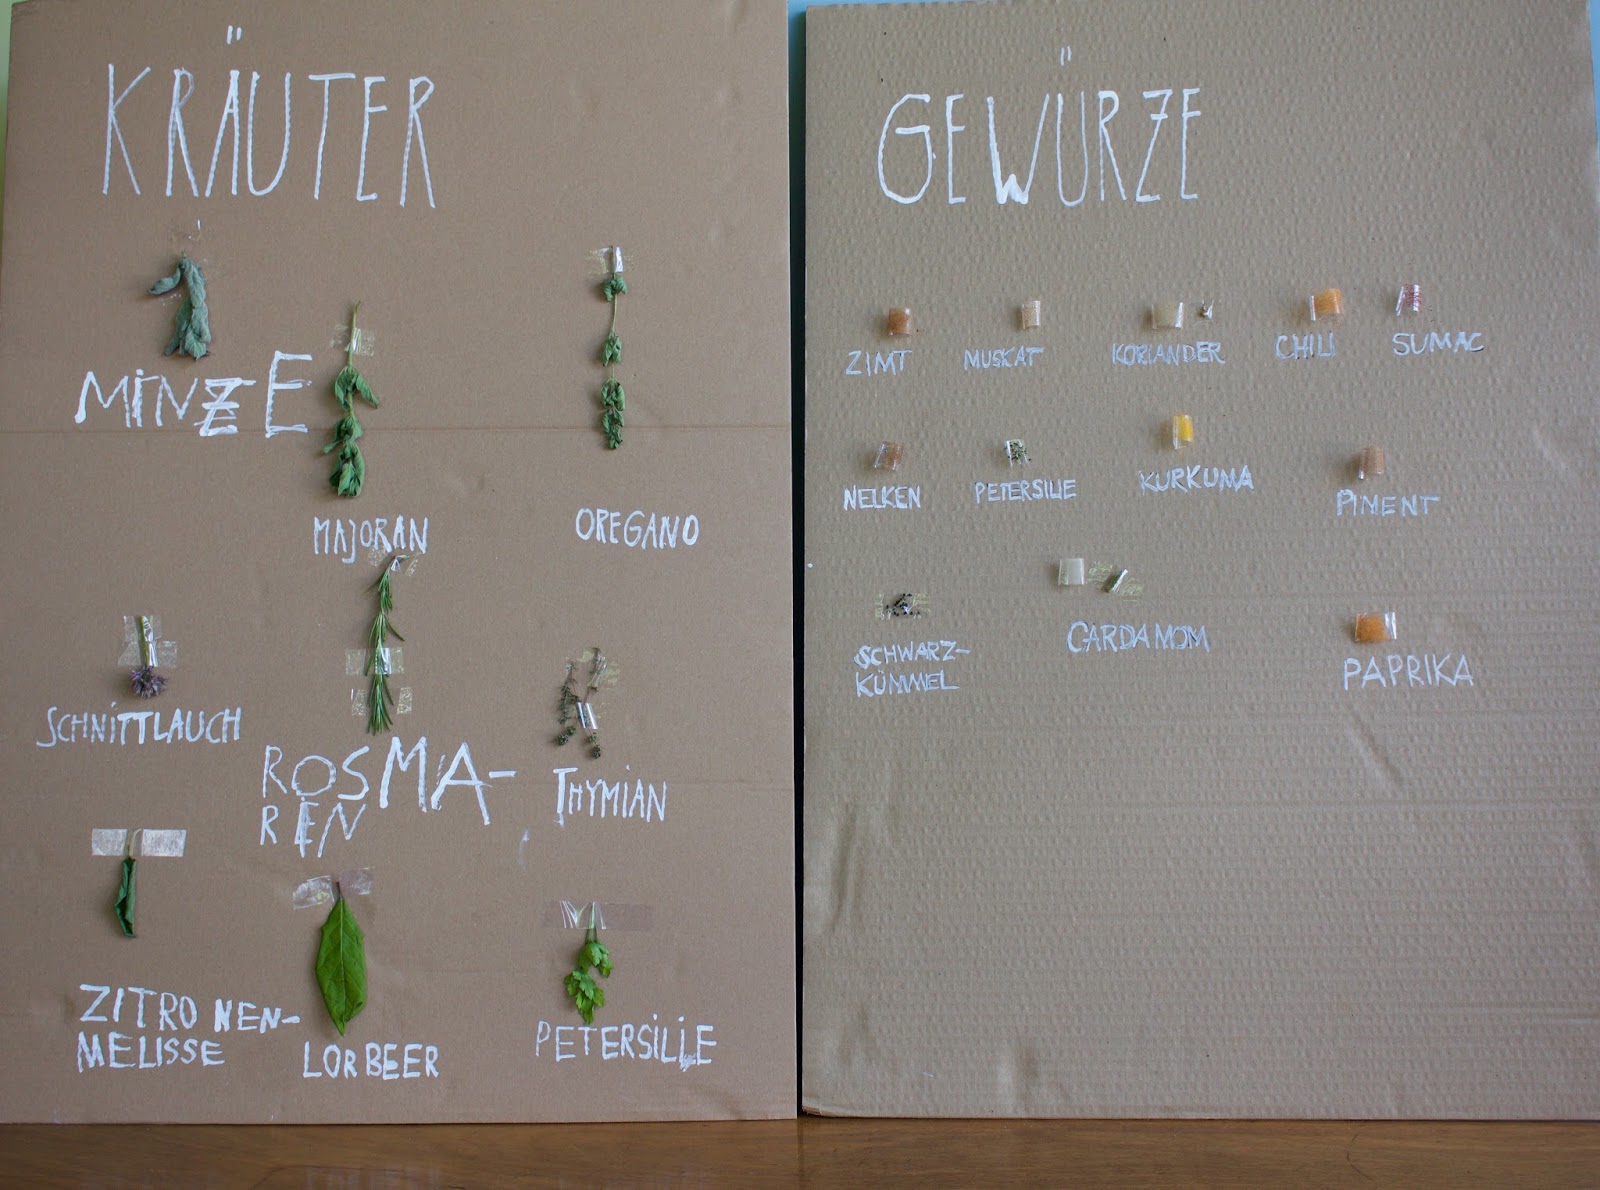 KRÄUTER
MINZE
MAJORAN
OREGANO
SCHNITTLAUCH
ROSMA-
REN
THYMIAN
ZITRONEN-
MELISSE
LORBEER
PETERSILIE
GEWÜRZE
ZIMT
MUSKAT
KORIANDER
CHILI
SUMAC
NELKEN
PETERSILIE
KURKUMA
PIMENT
SCHWARZ-
KÜMMEL
CARDAMOM
PAPRIKA